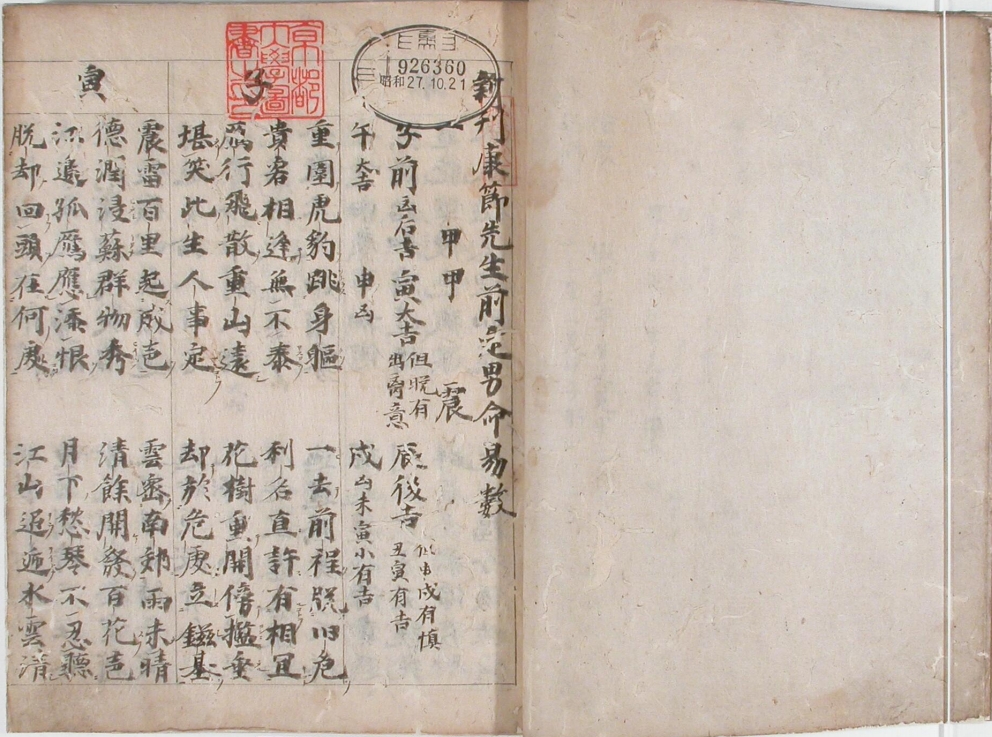 新刊康節先生前定男命易数
一 甲甲 震
子前凶后吉 寅大吉 但晩有出商意 辰後吉 但申戌有慎 丑寅有吉
午大吉 申凶 戌凶未寅小有吉
子
重圍虎豹跳身軀 一去前程脱旧危
貴君相逢無不泰 利名直許有相宜
鴈行飛散重山遠 花樹重開傍檻垂
堪笑比生人事定 却於危處立鎡基
寅
震雷百里起成邑 雲密南郊雨未晴
德潤浸蘇群物秀 清餘開發百花邑
孤鴈應添恨 月下愁琴不忍聽
脱却回頭在何處 江山迢逓水雲清
京都大學圖書之印
926360
昭和27.10.21